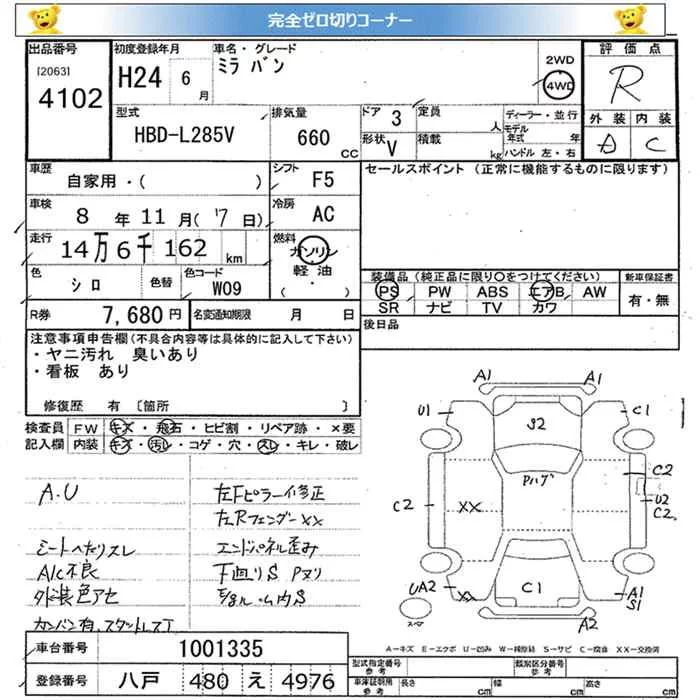 完全ゼロ切りコーナー
出品番号 [2063] 4102
初度登録年月 H24 6月
車名・グレード ミラ バン
2WD 4WD
評価点 R
外装 A 内装 C
型式 HBD-L285V
排気量 660 CC
ドア 3 形状 V
定員 人 積載 kg
ディーラー・並行
モデル年式 年
ハンドル 左・右
車歴 自家用・( )
シフト F5
セールスポイント (正常に機能するものに限ります)
車検 8年 11月 (17日)
冷房 AC
走行 14万6千162 km
燃料 ガソリン 軽油・( )
色 シロ 色替
色コード W09
装備品 (純正品に限り○をつけてください)
新車保証書 有・無
PS PW ABS エアB AW
SR ナビ TV カワ
R券 7,680円
名変通知期限 月 日
後日品
注意事項申告欄(不具合内容等は具体的に記入して下さい)
・ヤニ汚れ 臭いあり
・看板 あり
修復歴 有 〔箇所 〕
検査員記入欄
FW キズ・飛石・ヒビ割・リペア跡・×要
内装 キズ・汚レ・コゲ・穴・スレ・キレ・破レ
A.U
シートへたりスレ
A/C不良
外装色アセ
カンバン有、スタットレスT
左Fピラーイ修正
左Rフェンダーxx
エンドパネル歪み
下廻りS Pヌリ
A1 A1
U1 C1
S2
Pハゲ
C2
C2 XX U2
C2
UA2 XX C1 A1
S1
スペア
A2
A-キズ E-エクボ U-凹み W-補修跡 S-サビ C-腐食 XX-交換済
車台番号 1001335
登録番号 八戸 480 え 4976
型式指定番号 参考
類別区分番号 参考
車庫証明用 参考 長さ cm 幅 cm 高さ cm